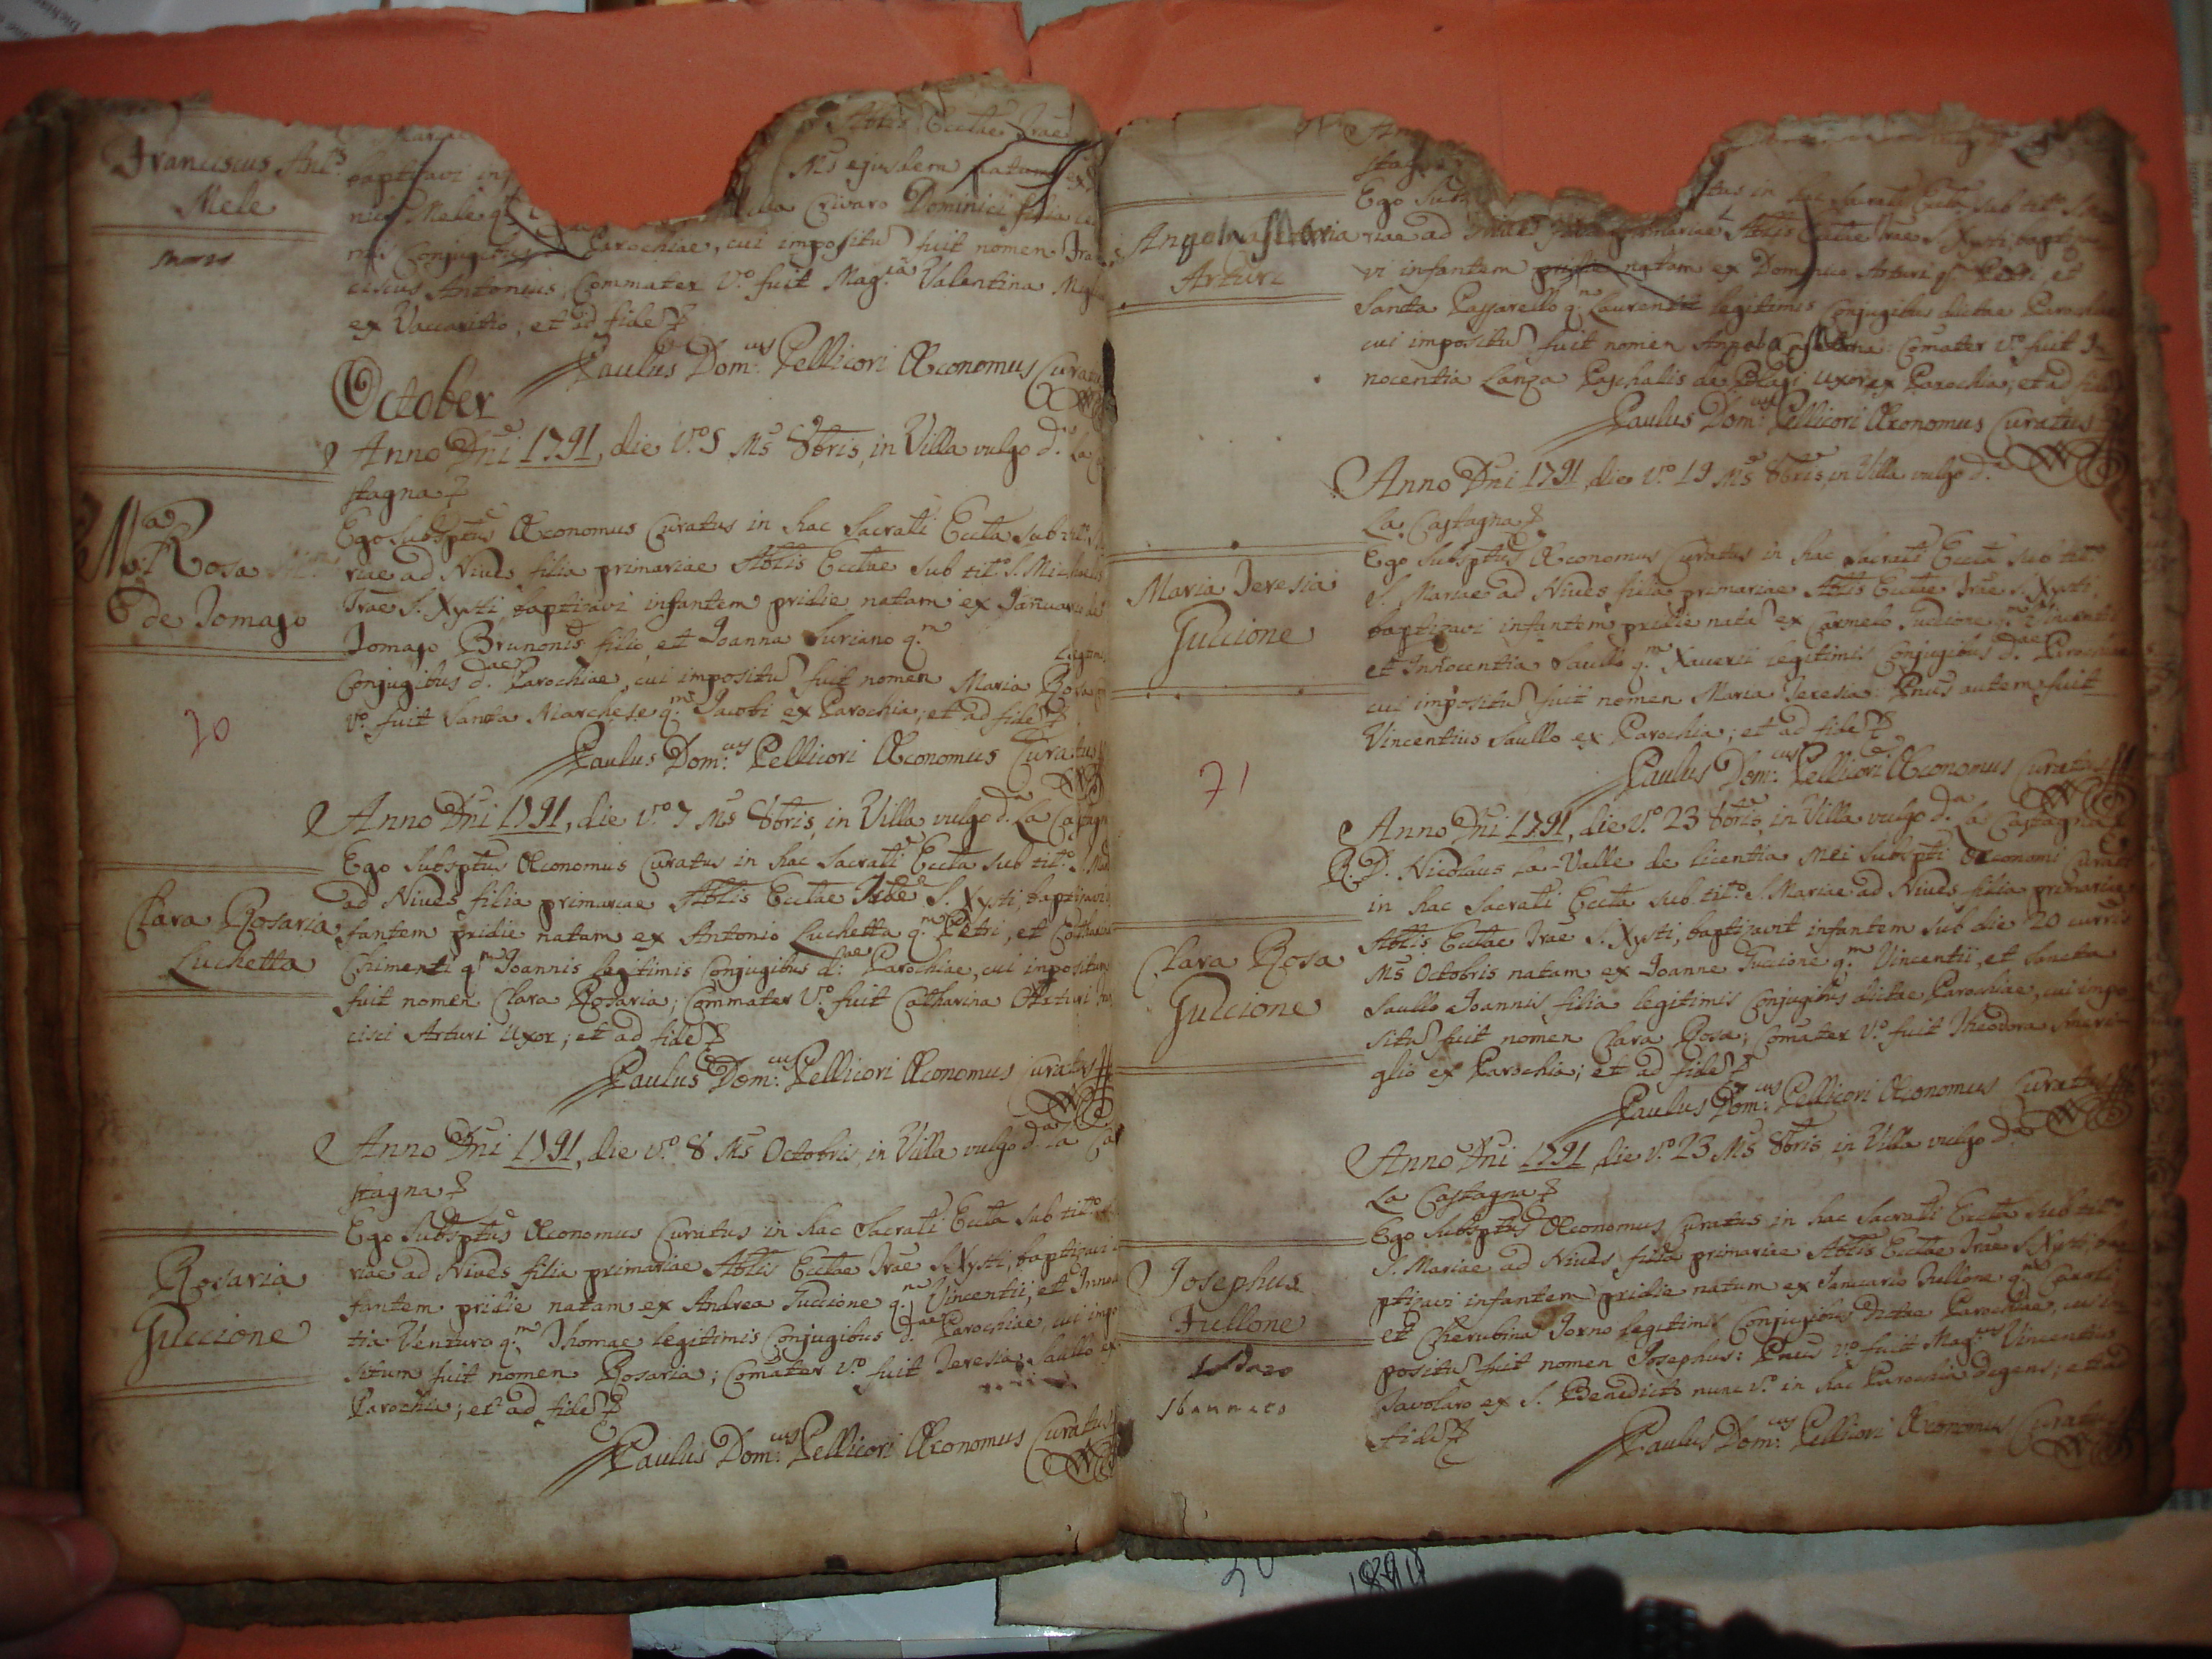 Franciscus Ant.s
Mele
Abtis Ecctae Trae
baptizavi in
Ms ejusdem natum ex
nio Mele q.
Crivaro Dominici filia
mis Conjugibus Parochiae, cui impositu fuit nomen Fran
ciscus Antonius, Commater V.o fuit Mag.ca Valentina
ex Vaccaritio, et ad fide
Paulus Dom.cus Pellicori Œconomus Curatus
October
Anno Dni 1791, die V.o 5 Ms 8bris, in Villa vulgo d.a La Ca
stagna
M.a Rosa
de Tomaso
Ego Subsptus Œconomus Curatus in hac Sacrati Eccta sub tit.o
riae ad Nives filia primariae Abtis Ecctae sub tit.o S. Michaelis
Trae S. Xysti, baptizavi infantem pridie natam ex Januario de
Tomaso Brunonis filio, et Joanna Suriano q.m
Legitimis
Conjugibus d.ae Parochiae, cui impositu fuit nomen Maria Rosa
V.o fuit Santa Marchese q.m Jacobi ex Parochia; et ad fide
70
Paulus Dom.cus Pellicori Œconomus Curatus
Anno Dni 1791, die V.o 7 Ms 8bris, in Villa vulgo d.a La Castagna
Clara Rosaria
Luchetta
Ego Subsptus Œconomus Curatus in hac Sacrati Eccta sub tit.o S. Ma
ad Nives filia primariae Abtis Ecctae Trae S. Xysti, baptizavi
fantem pridie natam ex Antonio Luchetta q.m Petri, et Catharina
Chimenti q.m Joannis legitimis Conjugibus d.ae Parochiae, cui impositum
fuit nomen Clara Rosaria; Commater V.o fuit Catharina
cisci Arturi Uxor; et ad fide
Paulus Dom.cus Pellicori Œconomus Curatus
Anno Dni 1791, die V.o 8 Ms Octobris, in Villa vulgo d.a La Ca
stagna
Rosaria
Guccione
Ego Subsptus Œconomus Curatus in hac Sacrati Eccta sub tit.o
riae ad Nives filia primariae Abtis Ecctae Trae S. Xysti, baptizavi
fantem pridie natam ex Andrea Guccione q.m Vincentii, et Innocen
tia Venturo q.m Thomae legitimis Conjugibus d.ae Parochiae, cui impo
situm fuit nomen Rosaria; Comater V.o fuit Teresia Saullo ex
Parochia; et ad fide
Paulus Dom.cus Pellicori Œconomus Curatus
Angela
Arturi
Ego Sub tus in hac Sacrati Eccta sub tit.o S. Ma
riae ad Nives filia primariae Abtis Ecctae Trae S. Xysti, baptiza
vi infantem pridie natam ex Dominico Arturi q.m Petri, et
Santa Passarello q.m Laurentii legitimis Conjugibus dictae Parochiae
cui impositu fuit nomen Angela : Comater V.o fuit In
nocentia Lanza Paschalis de Biasi uxor ex Parochia; et ad fide
Paulus Dom.cus Pellicori Œconomus Curatus
Anno Dni 1791, die V.o 19 Ms 8bris, in Villa vulgo d.a
La Castagna
Maria Teresia
Guccione
Ego Subsptus Œconomus Curatus in hac Sacrati Eccta sub tit.o
S. Mariae ad Nives filia primariae Abtis Ecctae Trae S. Xysti,
baptizavi infantem pridie nata ex Carmelo Guccione q.m Vincentii
et Innocentia Saullo q.m Xaverii legitimis Conjugibus d.ae Parochiae
cui impositu fuit nomen Maria Teresia. Pnus autem fuit
Vincentius Saullo ex Parochia; et ad fide
71
Paulus Dom.cus Pellicori Œconomus Curatus
Anno Dni 1791, die V.o 23 8bris, in Villa vulgo d.a La Castagna
Clara Rosa
Guccione
R. D. Nicolaus La-Valle de licentia mei Subspti Œconomi Curati
in hac Sacrati Eccta sub tit.o S. Mariae ad Nives filia primariae
Abtis Ecctae Trae S. Xysti, baptizavit infantem sub die 20 currtis
Ms Octobris natam ex Joanne Guccione q.m Vincentii, et Sancta
Saullo Joannis filia legitimis Conjugibus dictae Parochiae, cui impo
situ fuit nomen Clara Rosa; Comater V.o fuit Theodora Smeri
glio ex Parochia; et ad fide
Paulus Dom.cus Pellicori Œconomus Curatus
Anno Dni 1791, die V.o 23 Ms 8bris, in Villa vulgo d.a
La Castagna
Josephus
Fullone
Ego Subsptus Œconomus Curatus in hac Sacrati Eccta sub tit.o
S. Mariae ad Nives filia primariae Abtis Ecctae Trae S. Xysti, ba
ptizavi infantem pridie natum ex Januario Fullone q.m Caroli
et Cherubina Jorno legitimis Conjugibus dictae Parochiae, cui im
positu fuit nomen Josephus: Pnus V.o fuit Mag.cus Vincentius
Tavolaro ex S. Benedicto nunc V.o in hac Parochia degens; et ad
fide
Paulus Dom.cus Pellicori Œconomus Curatus